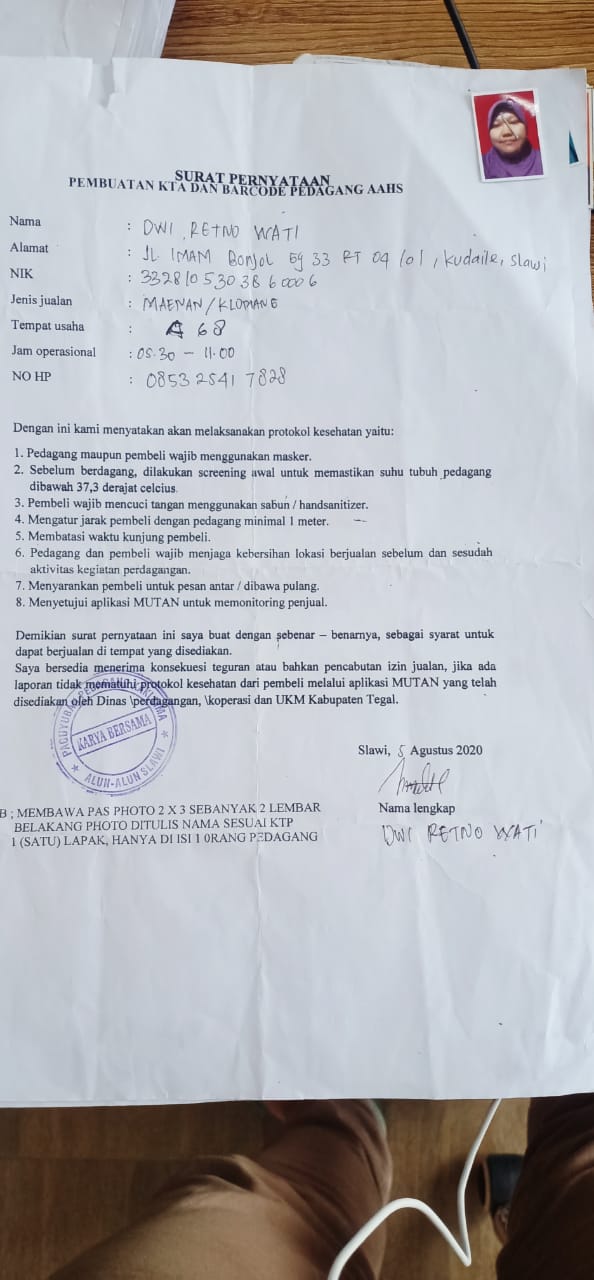 SURAT PERNYATAAN
PEMBUATAN KTA DAN BARCODE PEDAGANG AAHS
Nama : DWI RETNO WATI
Alamat : JL. IMAM Bonjol Gg 33 RT 04 /01, kudaile, slawi
NIK : 3328105303860006
Jenis jualan : MAENAN/KLOMANG
Tempat usaha : A 68
Jam operasional : 05.30 - 11.00
NO HP : 0853 2541 7828
Dengan ini kami menyatakan akan melaksanakan protokol kesehatan yaitu:
1. Pedagang maupun pembeli wajib menggunakan masker.
2. Sebelum berdagang, dilakukan screening awal untuk memastikan suhu tubuh pedagang
dibawah 37,3 derajat celcius.
3. Pembeli wajib mencuci tangan menggunakan sabun / handsanitizer.
4. Mengatur jarak pembeli dengan pedagang minimal 1 meter.
5. Membatasi waktu kunjung pembeli.
6. Pedagang dan pembeli wajib menjaga kebersihan lokasi berjualan sebelum dan sesudah
aktivitas kegiatan perdagangan.
7. Menyarankan pembeli untuk pesan antar / dibawa pulang.
8. Menyetujui aplikasi MUTAN untuk memonitoring penjual.
Demikian surat pernyataan ini saya buat dengan sebenar – benarnya, sebagai syarat untuk
dapat berjualan di tempat yang disediakan.
Saya bersedia menerima konsekuesi teguran atau bahkan pencabutan izin jualan, jika ada
laporan tidak mematuhi protokol kesehatan dari pembeli melalui aplikasi MUTAN yang telah
disediakan oleh Dinas \perdagangan, \koperasi dan UKM Kabupaten Tegal.
KARYA BERSAMA
ALUN-ALUN SLAWI
Slawi, 5 Agustus 2020
Nama lengkap
DWI RETNO WATI
B ; MEMBAWA PAS PHOTO 2 X 3 SEBANYAK 2 LEMBAR
BELAKANG PHOTO DITULIS NAMA SESUAI KTP
1 (SATU) LAPAK, HANYA DI ISI 1 0RANG PEDAGANG